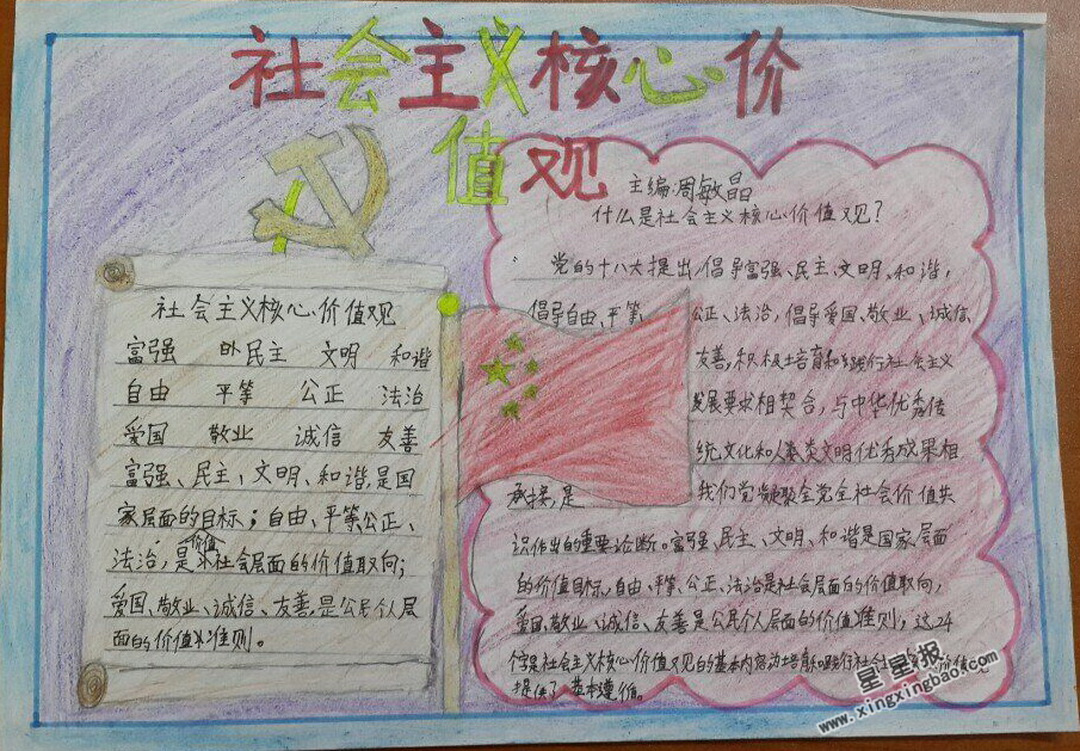 社会主义核心价
值观
主编:周敏晶
什么是社会主义核心价值观?
党的十八大提出,倡导富强、民主、文明、和谐,
倡导自由、平等、公正、法治,倡导爱国、敬业、诚信
友善,积极培育和践行社会主义
发展要求相契合,与中华优秀传
统文化和人类文明优秀成果相
承接,是我们党凝聚全党全社会价值共
识作出的重要论断。富强、民主、文明、和谐是国家层面
的价值目标,自由、平等、公正、法治是社会层面的价值取向,
爱国、敬业、诚信、友善是公民个人层面的价值准则,这24
个字是社会主义核心价值观的基本内容为培育和践行社会 价值观
提供了基本遵循。
社会主义核心价值观
富强 民主 文明 和谐
自由 平等 公正 法治
爱国 敬业 诚信 友善
富强、民主、文明、和谐,是国
家层面的目标;自由、平等公正、
价值
法治,是社会层面的价值取向;
爱国、敬业、诚信、友善,是公民个人层
面的价值准则。
星星报
www.xingxingbao.com